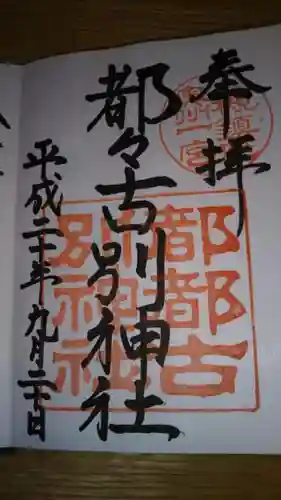 奉拝
都々古別神社
平成二十年九月二十日
都都古
別神社